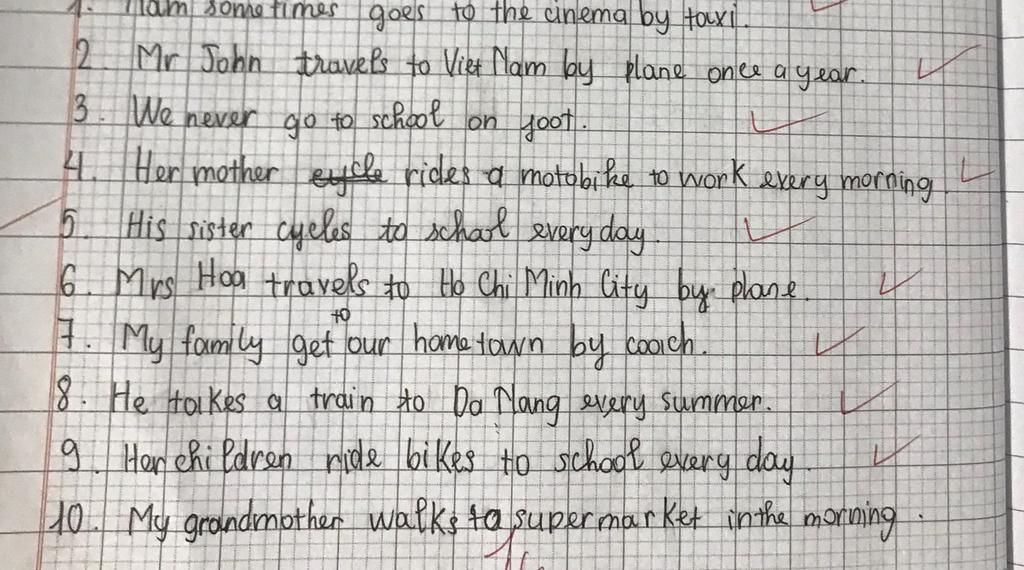 1. Nam sometimes goes to the cinema by taxi.
2. Mr John travels to Viet Nam by plane once a year.
3. We never go to school on foot.
4. Her mother cycle rides a motobike to work every morning
5. His sister cycles to school every day.
6. Mrs Hoa travels to Ho Chi Minh City by plane.
7. My family get to our hometown by coach.
8. He takes a train to Da Nang every summer.
9. Her children ride bikes to school every day.
10. My grandmother walks to supermarket in the morning.